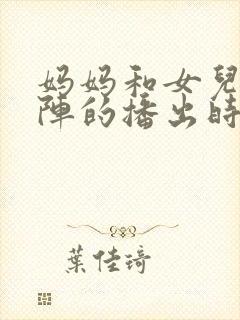 妈妈和女兒
陣的播出時
葉佳琦